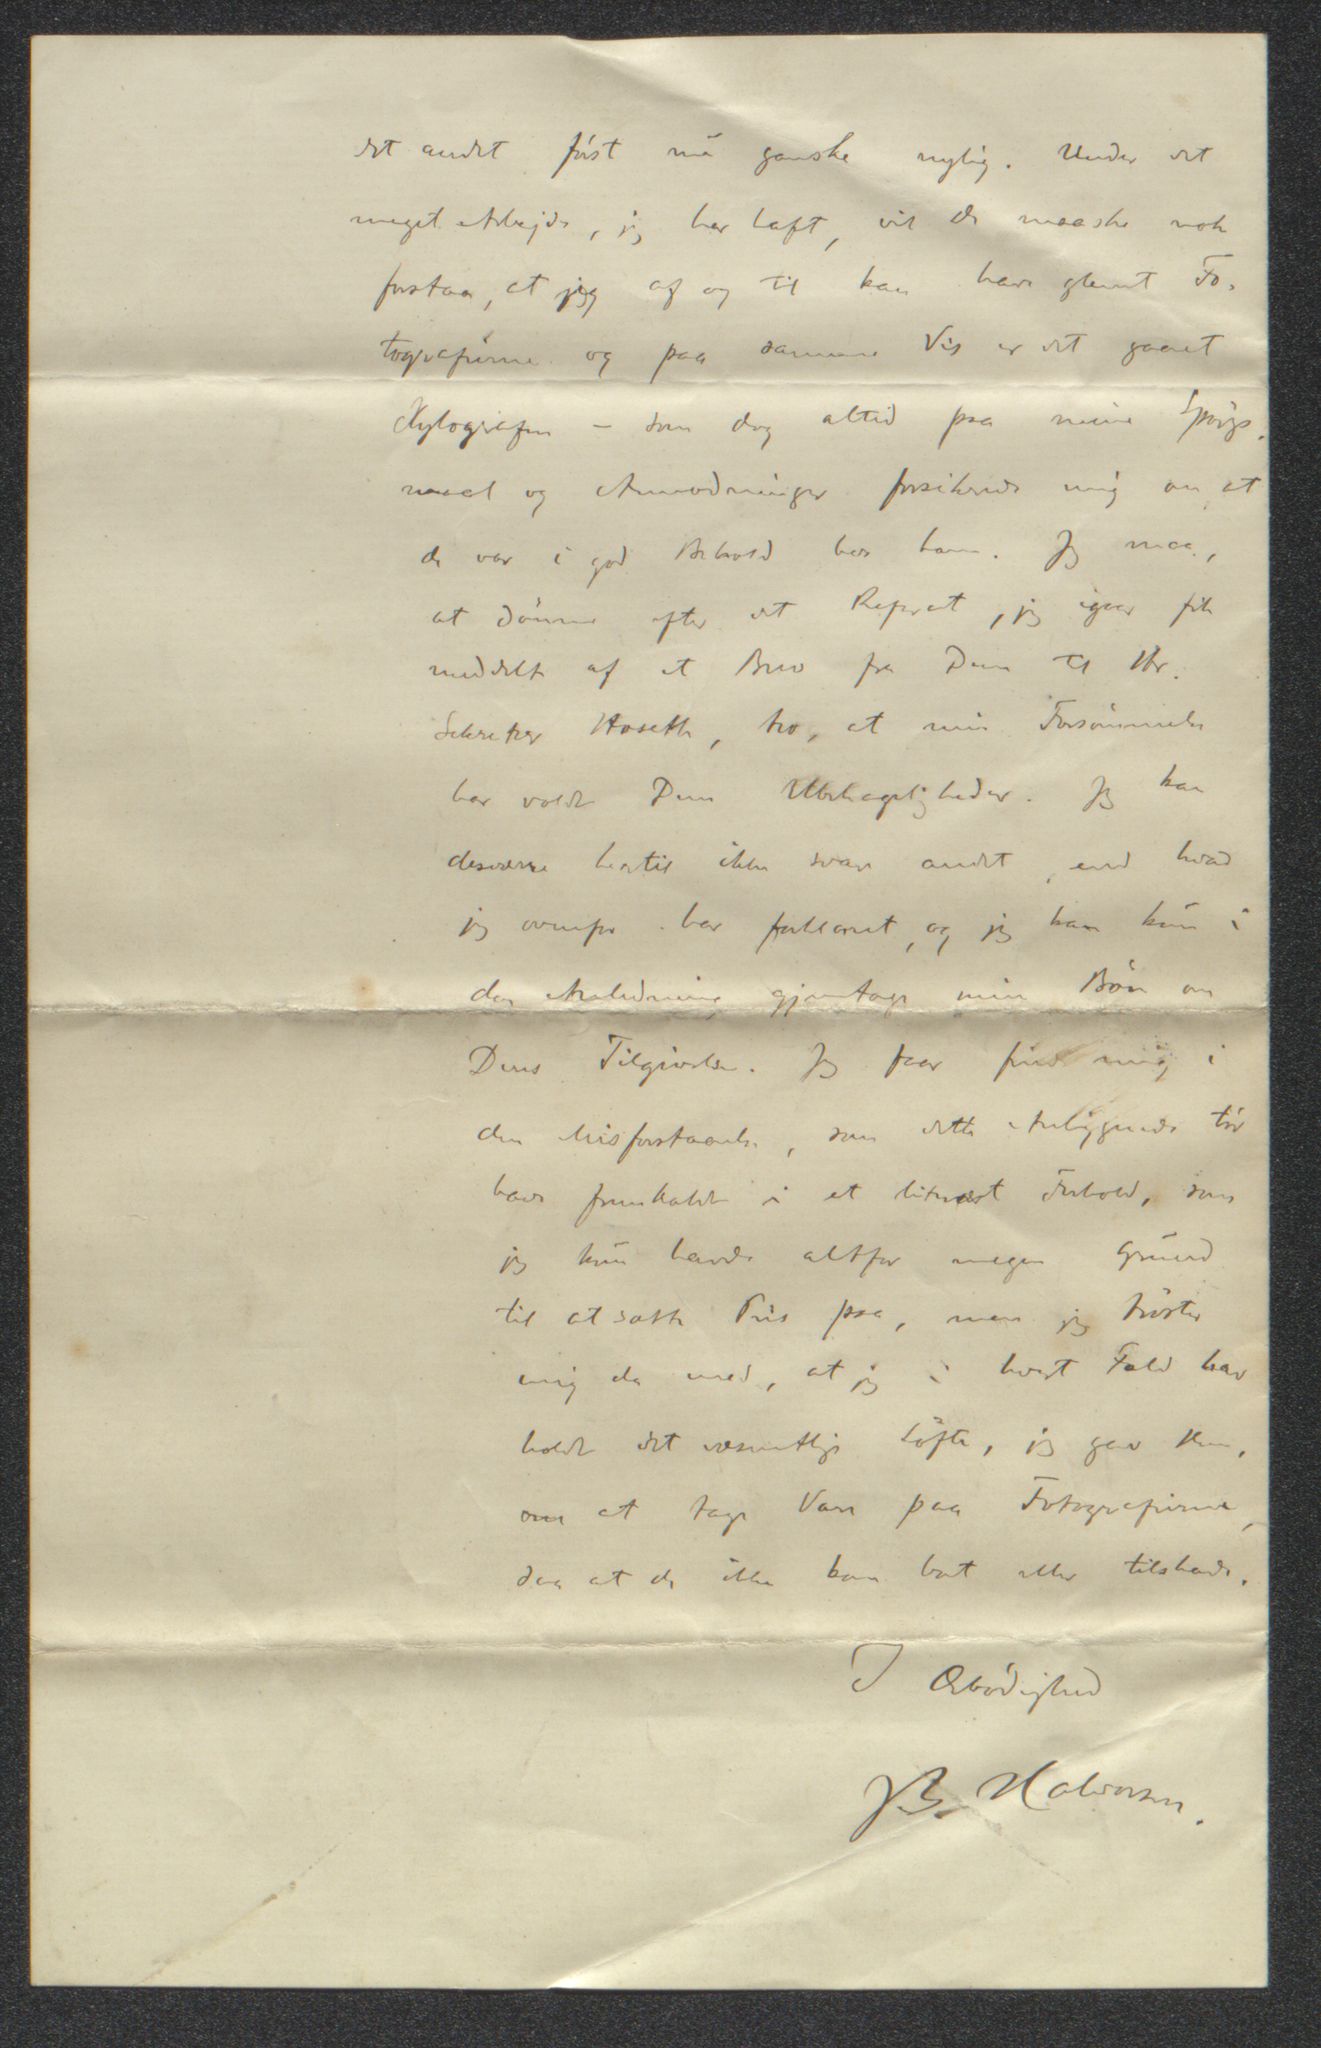 det andet först nu ganske nylig. Under det
meget Arbejde, jeg har haft, vil De maaske nok
forstaa, at jeg af og til kan have glemt Fo-
tografierne og paa samme Vis er det gaaet
Xylografen – som dog altid paa mine Spörgs-
maal og Anmodninger forsikrede mig om, at
de var i god Behold hos ham. Jeg maa,
at dömme efter det Referat, jeg igaar fik
meddelt af et Brev fra Dem til Hr.
Sekretær Hoseth, tro, at min Forsömmelse
har voldt Dem Ubehageligheder. Jeg kan
desværre hertil ikke svare andet, end hvad
jeg ovenfor har forklaret, og jeg kan kun i
den Anledning gjentage min Bön om
Deres Tilgivelse. Jeg faar finde mig i
den Misforstaaelse, som dette Anliggende tör
have fremkaldt i et literært Forhold, som
jeg kun havde altfor megen Grund
til at sætte Pris paa, men jeg tröster
mig da med, at jeg i hvert Fald har
holdt det væsentlige Löfte, jeg gav Dem,
om at tage Vare paa Fotografierne,
saa at de ikke kom bort eller tilskade.
I Ærbödighed
JB. Halvorsen.